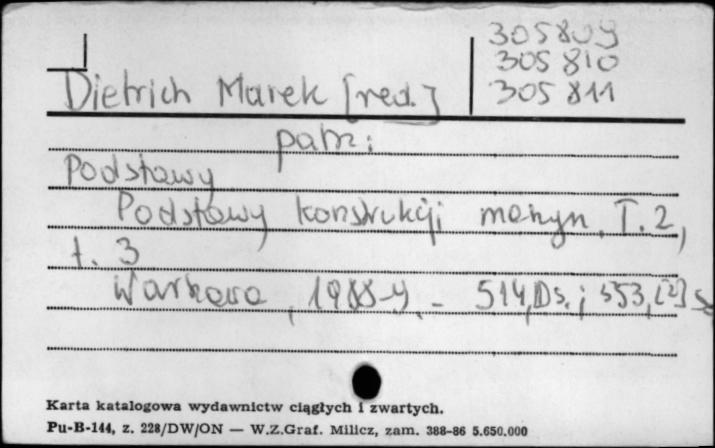 305809
305810
305811
Dietrich Marek [red.]
patrz:
Podstawy
Podstawy konstrukcji maszyn. T. 2,
t. 3
Warszawa, 1988-9. - 514, s.; 553, [2] s
Karta katalogowa wydawnictw ciągłych i zwartych.
Pu-B-144, z. 228/DW/ON — W.Z.Graf. Milicz, zam. 388-86 5.650.000